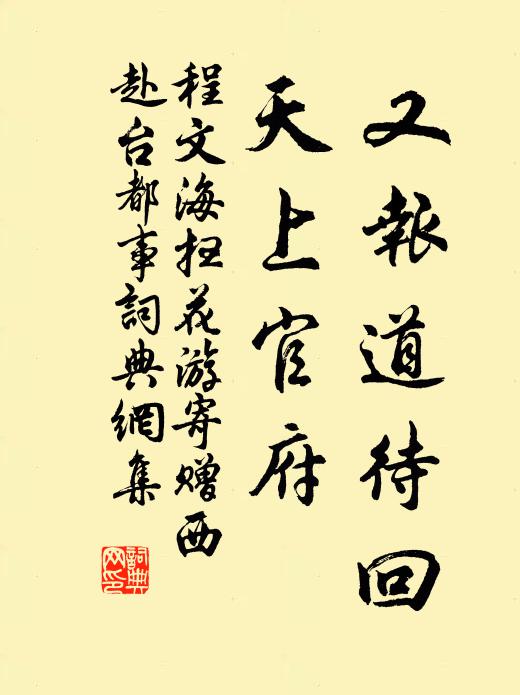 又報道待回
天上官府
程文海扫花游寄赠西
赴台都事詞典網集
詞典
网印